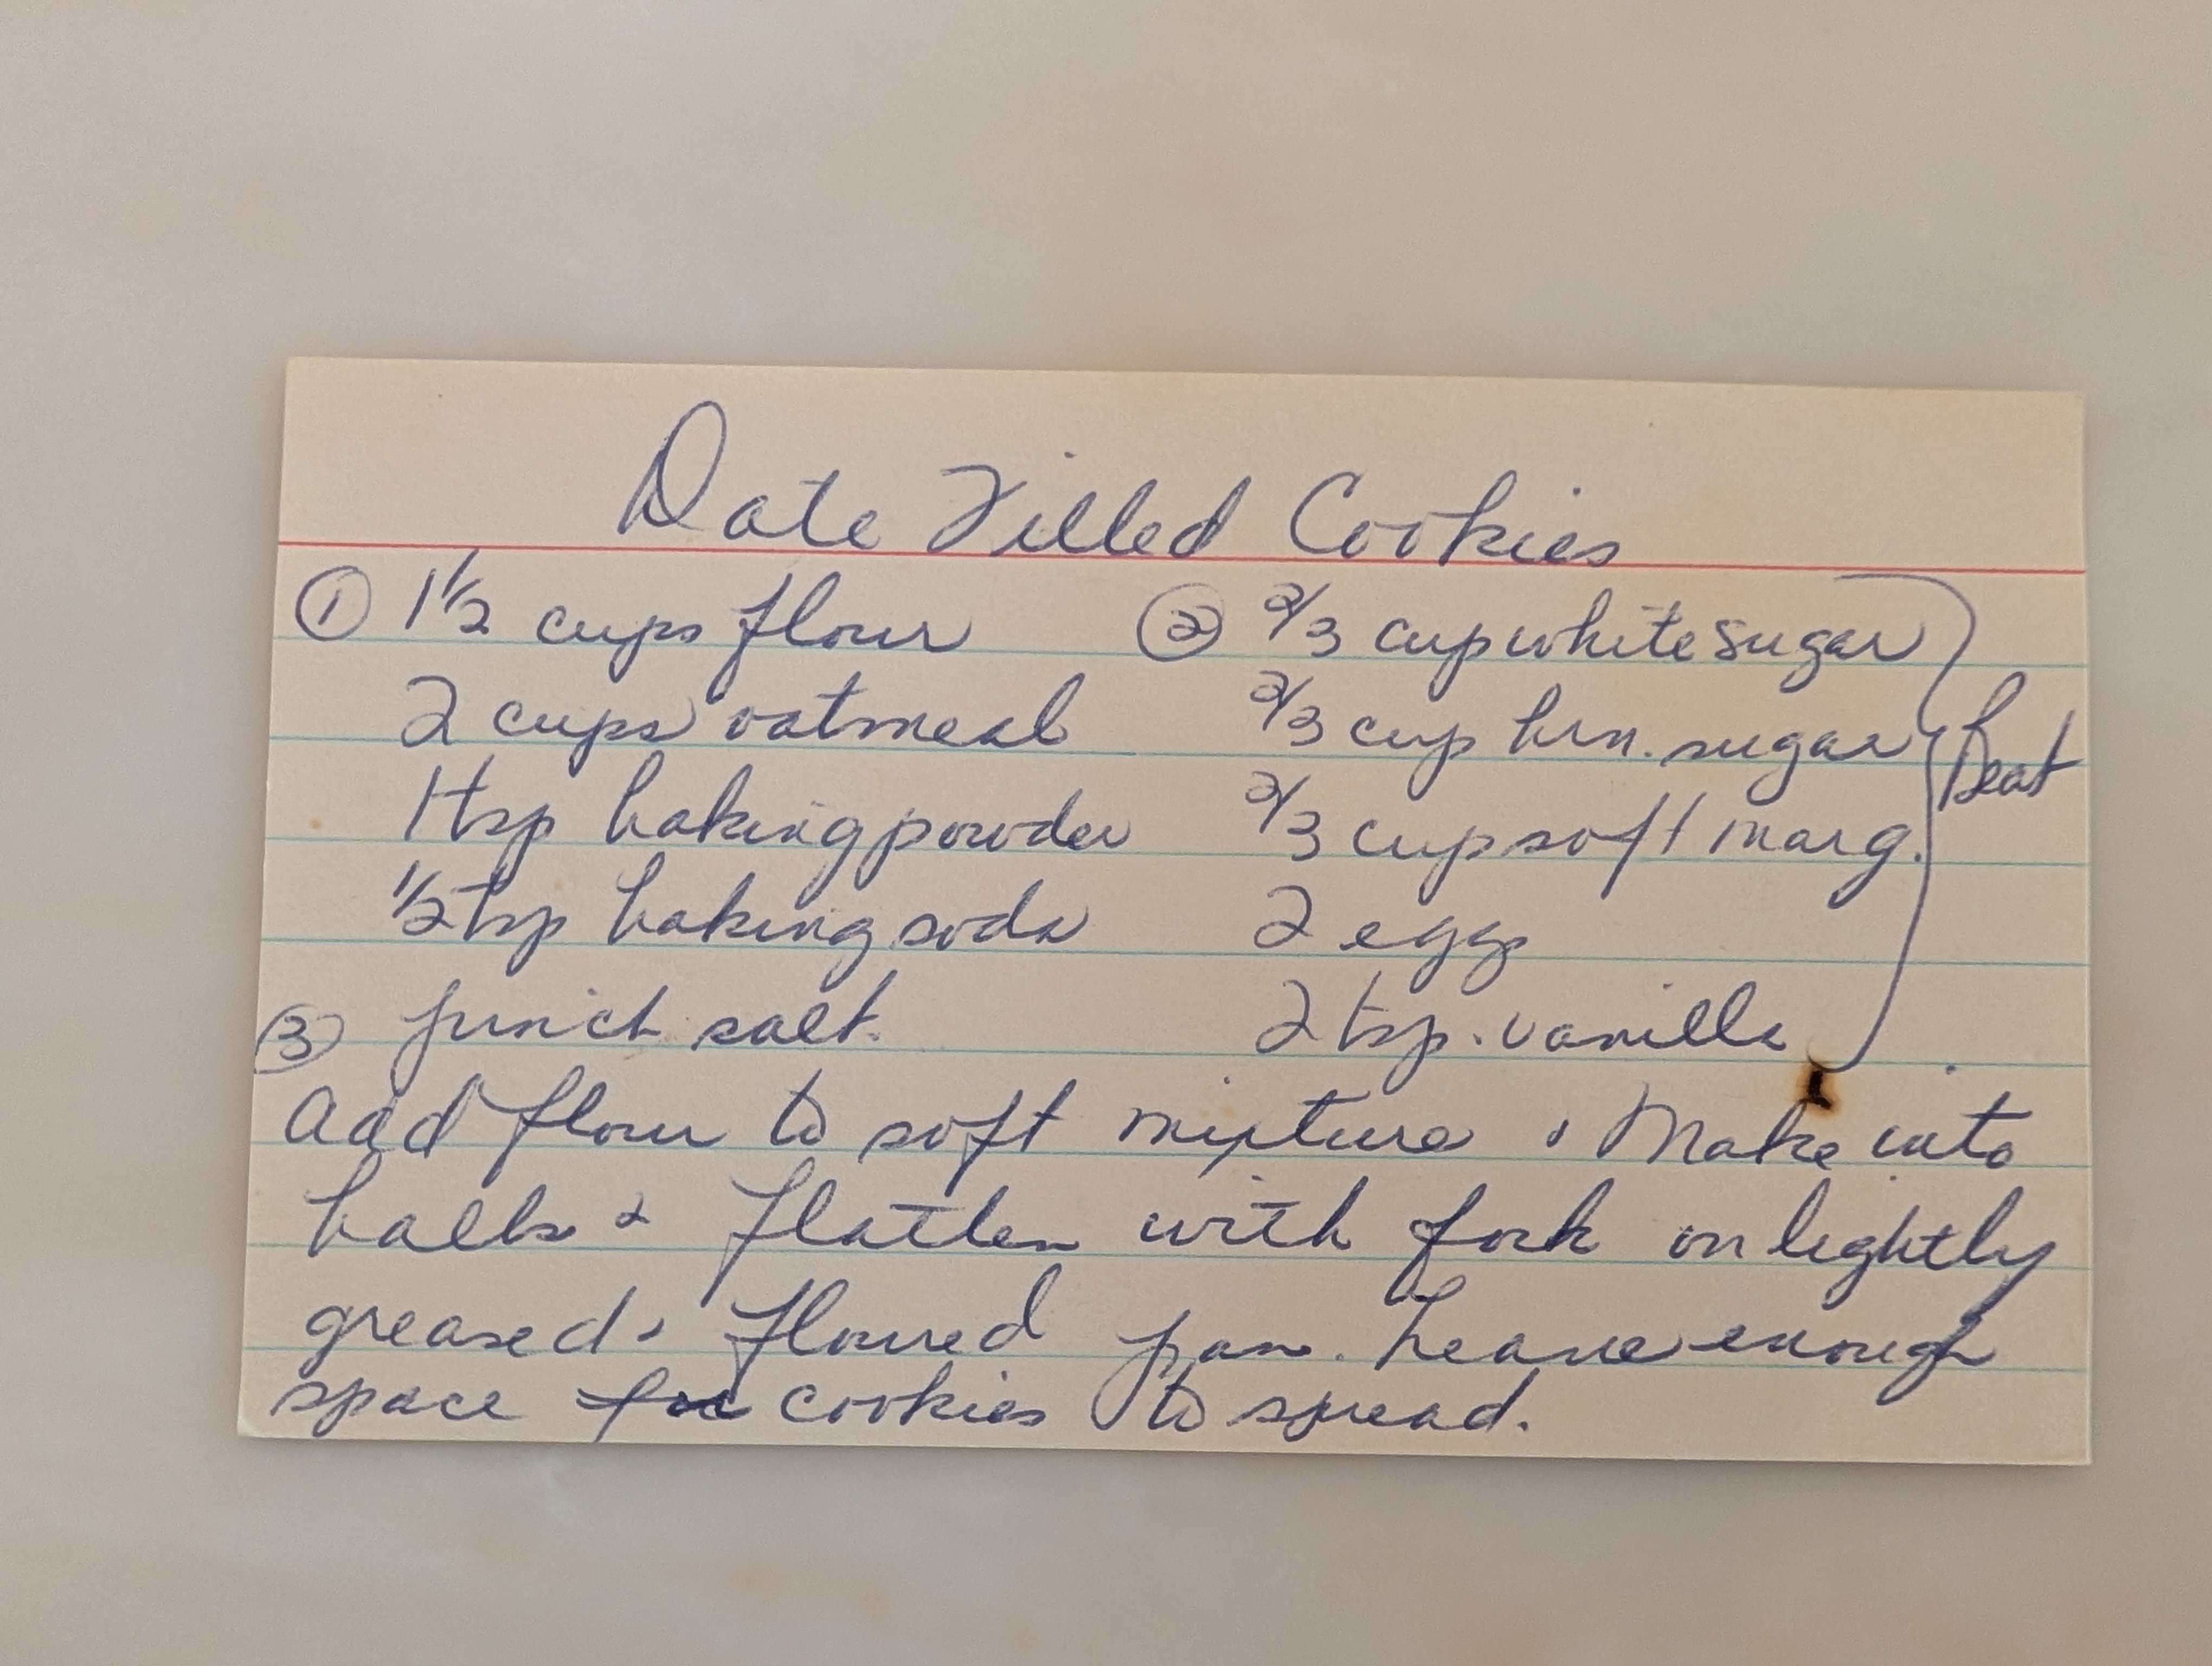 Date Filled Cookies
① 1 1/2 cups flour ② 2/3 cup white sugar
2 cups oatmeal 2/3 cup brn. sugar Beat
1 tsp baking powder 2/3 cup soft marg.
1/2 tsp baking soda 2 eggs
③ pinch salt. 2 tsp. vanilla
Add flour to soft mixture & Make into
balls & flatten with fork on lightly
greased & floured pan. Leave enough
space for cookies to spread.